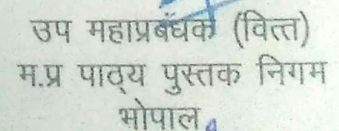 उप महाप्रबंधक (वित्त)
म.प्र पाठ्य पुस्तक निगम
भोपाल